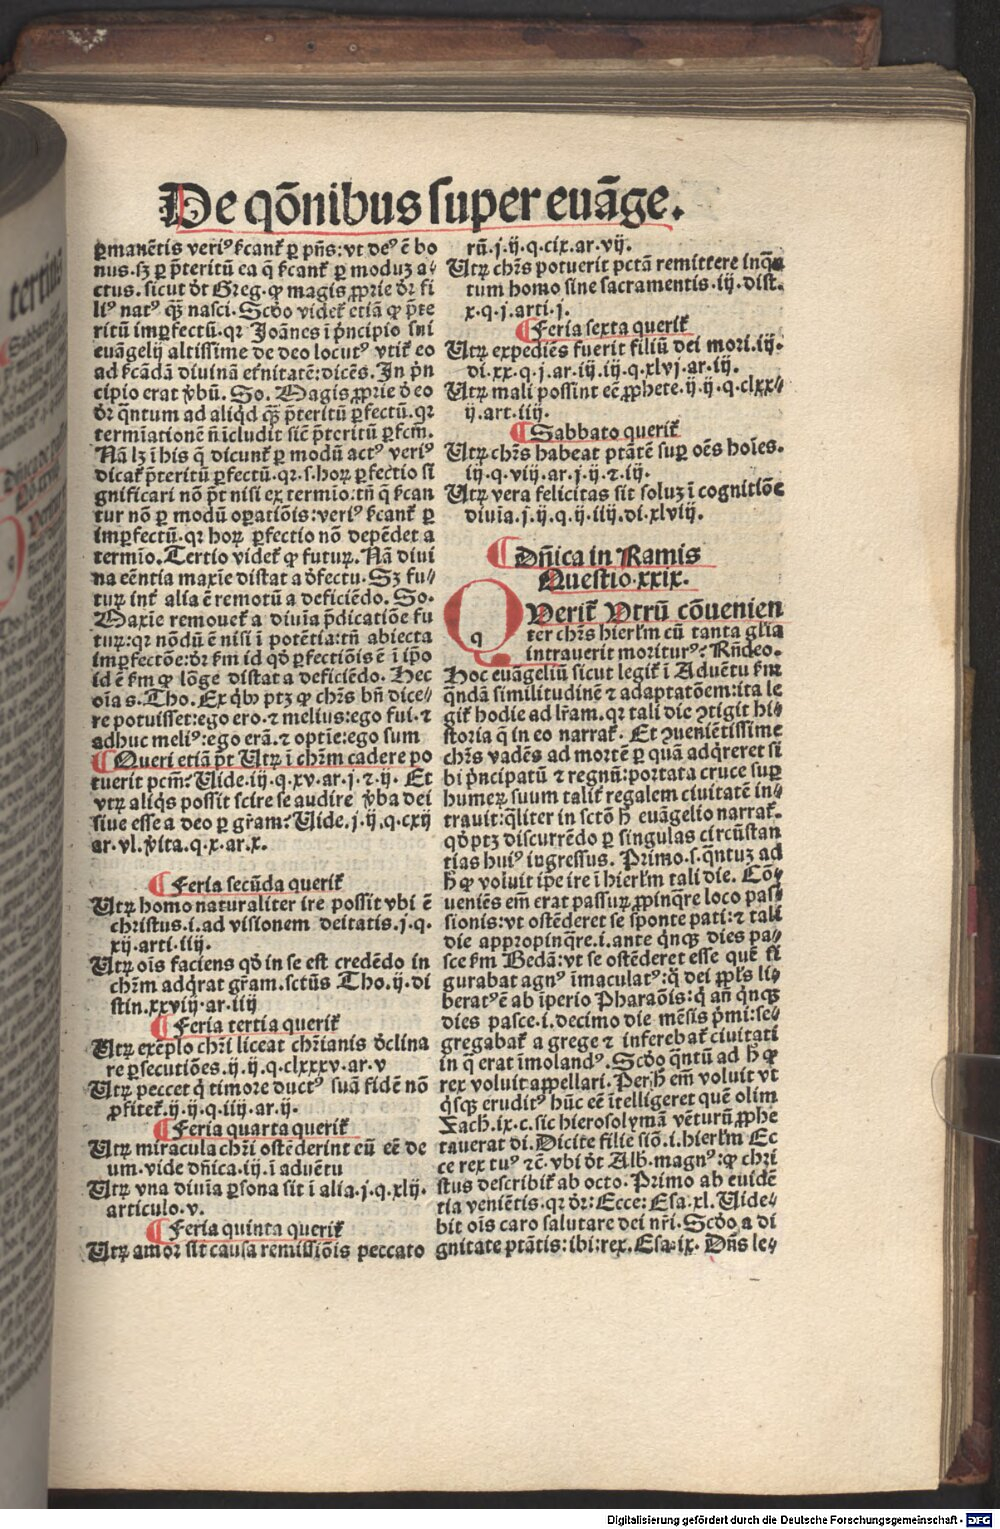 De qōnibus super euāge.
ꝑmanētis veriꝰ ſcant᷑ ꝑ pn̄s: vt deꝰ ē bo
nus. sꝫ ꝑ p̄teritū ea q̄ ſcant᷑ ꝑ moduꝫ a⸗
ctus. sicut d̄t Greg. ꝙ magis ꝓprie d̄r fi
liꝰ natꝰ qꝫ̄ nasci. Scd̄o videt᷑ etiā ꝙ p̄te
ritū imꝑfectū. qꝛ Joānes ī pͥncipio sui
euāgelij altissime de deo locutꝰ vtit᷑ eo
ad ſcādā diuinā et͛nitatē: dicēs. In pͥn
cipio erat v̄bū. So. Magis ꝓprie d̄ eo
d̄r q̄ntum ad aliqd̄ qꝫ̄ p̄teritū ꝑfectū. qꝛ
termiationē n̄ icludit sic̄ p̄teritū ꝑfcm̄.
Nā lꝫ ī his q̄ dicunt᷑ ꝑ modū actꝰ veriꝰ
dicat᷑ p̄teritū ꝑfectū. qꝛ. s. hoꝝ ꝑfectio si
gnificari nō pōt nisi ex termio: tn̄ q̄ ſcan
tur nō ꝑ modū oꝑatiōis: veriꝰ ſcant᷑ ꝑ
imꝑfectū. qꝛ hoꝝ ꝑfectio nō depēdet a
termīo. Tertio videt᷑ ꝙ futuꝝ. Nā diui
na eēntia maxīe distat a d̄fectu. Sꝫ fu⸗
tuꝝ int᷑ alia ē remotū a deficiēdo. So.
Maxīe remouet᷑ a diuīa p̄dicatiōe fu
tuꝝ: qꝛ nōdū ē nisi ī potētia: tn̄ abiecta
imꝑfectōe: d̄r ẜm id qd̄ ꝑfectiōis ē ī ip̄o
id ē ẜm ꝙ lōge distat a deficiēdo. Hec
oīa s. Tho. Ex qͥbꝰ ptꝫ ꝙ chr̄s bn̄ dice⸗
re potuisset: ego ero. ⁊ melius: ego fui. ⁊
adhuc meliꝰ: ego erā. ⁊ optīe: ego sum
¶ Queri etiā pōt Utꝝ ī chr̄m cadere po
tuerit pcm̄? Uide. iij. q. xv. ar. j. ⁊. ij. Et
vtꝝ aliqͥs possit scire se audire v̄ba dei
siue esse a deo ꝑ gr̄am? Uide. j. ij. q. cxij
ar. vl. v̄ita. q. x. ar. x.
¶ Feria secūda querit᷑
Utꝝ homo naturaliter ire possit vbi ē
christus. i. ad visionem deitatis. j. q.
xij. arti. iiij.
Utꝝ oīs faciens qd̄ in se est credēdo in
chr̄m adqͥrat gr̄am. sctūs Tho. ij. di
stin. xxviij. ar. iiij
¶ Feria tertia querit᷑
Utꝝ exēplo chr̄i liceat chr̄ianis d̄clina
re ꝑsecutiōes. ij. ij. q. clxxxv. ar. v
Utꝝ peccet qͥ timore ductꝰ suā fidē nō
ꝓfitet᷑. ij. ij. q. iij. ar. ij.
¶ Feria quarta querit᷑
Utꝝ miracula chr̄i ostēderint eū eē de
um. vide dn̄ica. iij. ī aduētu
Utꝝ vna diuīa ꝑsona sit ī alia. j. q. xlij.
articulo. v.
¶ Feria quinta querit᷑
Utꝝ amor sit causa remissiōis peccato
rū. j. ij. q. cix. ar. vij.
Utꝝ chr̄s potuerit pctā remittere inqͣꝫ
tum homo sine sacramentis. iij. dist.
x. q. j. arti. j.
¶ Feria sexta querit᷑
Utꝝ expediēs fuerit filiū dei mori. iij.
di. xx. q. j. ar. iij. iij. q. xlvj. ar. iij.
Utꝝ mali possint eē ꝓphete. ij. ij. q. clxx⸗
ij. art. iiij.
¶ Sabbato querit᷑
Utꝝ chr̄s habeat ptātē suꝑ oēs hoīes.
iij. q. viij. ar. j. ij. ⁊. iij.
Utꝝ vera felicitas sit soluꝫ ī cognitiōe
diuīa. j. ij. q. ij. iiij. di. xlviij.
¶ Dn̄ica in Ramis
Questio. xxix.
Querit᷑ Utrū cōuenien
ter chr̄s hierl̄m cū tanta gl̄ia
intrauerit moriturꝰ? Rn̄deo.
Hoc euāgeliū sicut legit᷑ ī Aduētu ẜm
qn̄dā similitudinē ⁊ adaptatōem: ita le
git᷑ hodie ad lr̄am. qꝛ tali die ↄtigit hi⸗
storia q̄ in eo narrat᷑. Et ↄuenientissime
chr̄s vadēs ad mortē ꝑ quā adqͥreret si
bi pͥncipatū ⁊ regnū: portata cruce suꝑ
humeꝝ suum talit᷑ regalem ciuitatē in⸗
trauit: qͣliter in sctō h̄ euāgelio narrat᷑.
qd̄ ptꝫ discurrēdo ꝑ singulas circūstan
tias huiꝰ ingressus. Primo. s. q̄ntuꝫ ad
h̄ ꝙ voluit ip̄e ire ī hierl̄m tali die. Cō⸗
ueniēs em̄ erat passuꝝ ꝓpinqͣre loco pas
sionis: vt ostēderet se sponte pati: ⁊ tali
die appropinqͣre. i. ante qͥnqꝫ dies pa⸗
sce ẜm Bedā: vt se ostēderet esse quē fi
gurabat agnꝰ īmaculatꝰ: q̄ dei ꝓpl̄s li⸗
beratꝰ ē ab īperio Pharaōis: qͥ an̄ qͥnqꝫ
dies pasce. i. decimo die mēsis pͥmi: se⸗
gregabat᷑ a grege ⁊ inferebat᷑ ciuitati
in q̄ erat īmolandꝰ. Scd̄o q̄ntū ad h̄ ꝙ
rex voluit appellari. Per h̄ em̄ voluit vt
qͥsqꝫ eruditꝰ hūc eē ītelligeret quē olim
Zach. ix. c. sic hierosolymā vēturū ꝓphe
tauerat di. Dicite filie siō. i. hierl̄m Ec
ce rex tuꝰ ⁊c̄. vbi d̄t Alb. magnꝰ: ꝙ chri
stus describit᷑ ab octo. Primo ab euidē
tia veniētis. qꝛ d̄r: Ecce: Esa. xl. Uide⸗
bit oīs caro salutare dei nr̄i. Scd̄o a di
gnitate ptātis: ibi: rex. Esa. ix. Dn̄s le⸗
Digitalisierung gefördert durch die Deutsche Forschungsgemeinschaft - DFG